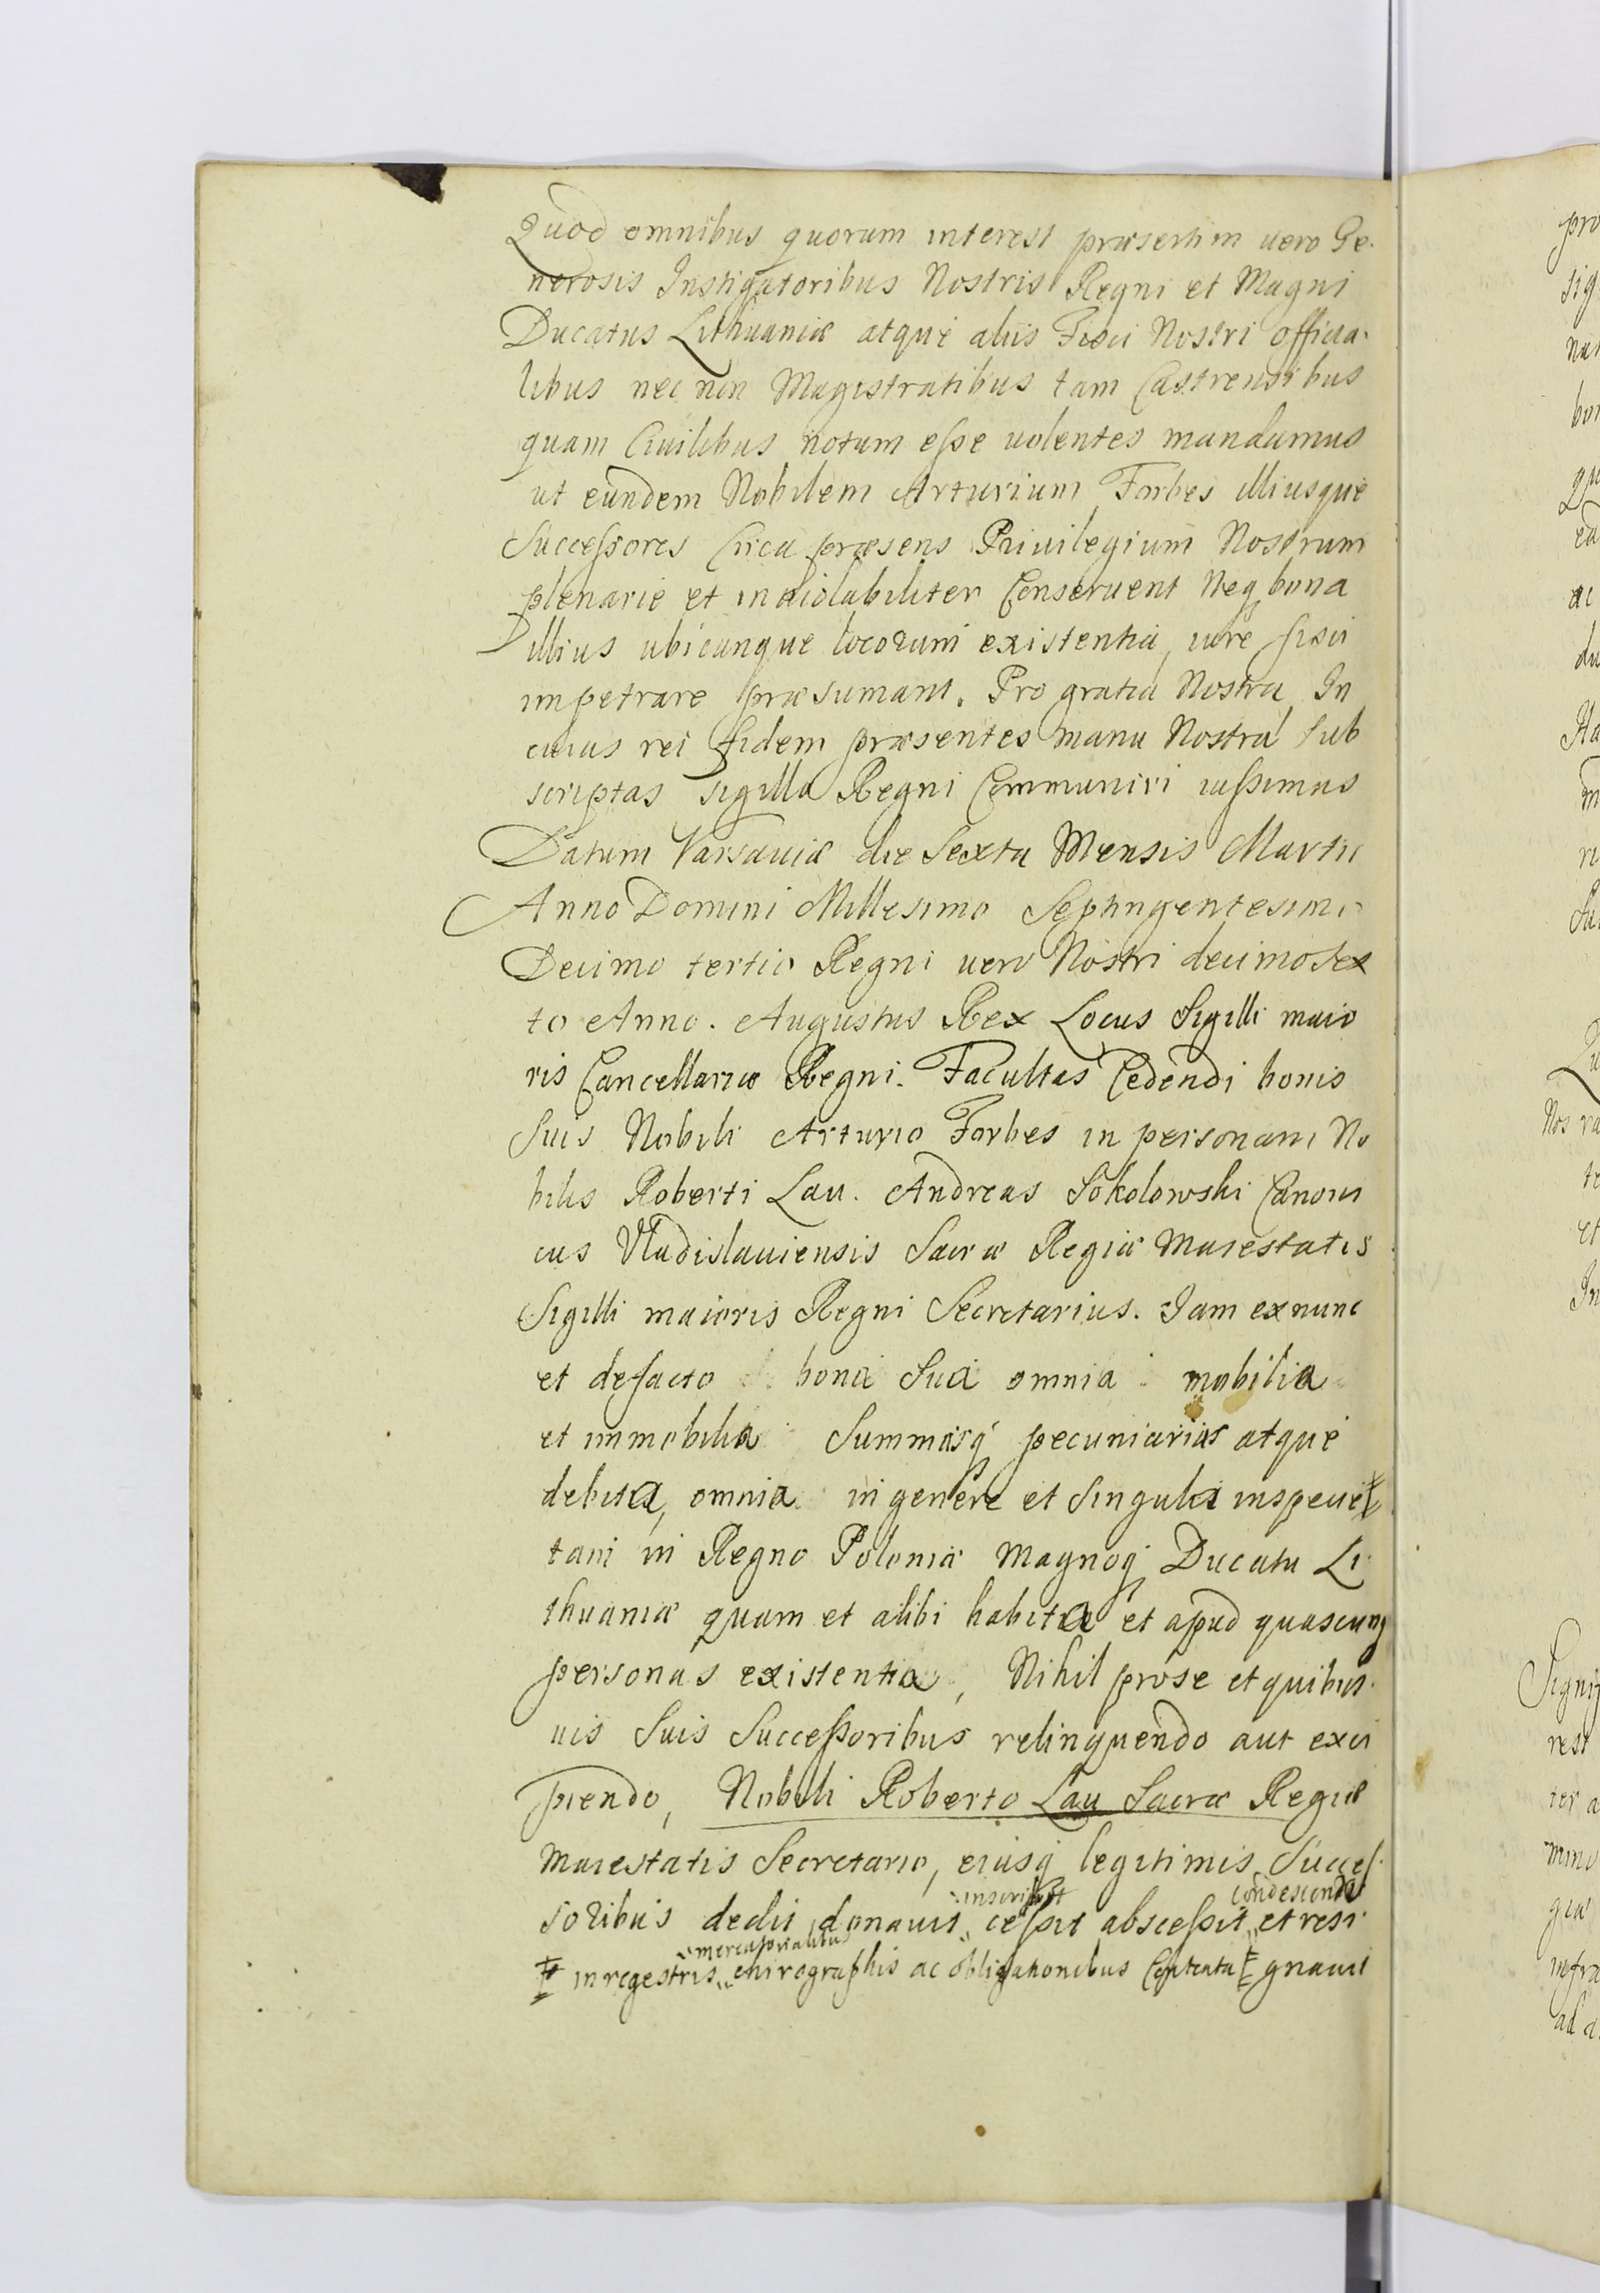 Quod omnibus quorum interest præsertim vero Ge-
nerosis Instigatoribus Nostris Regni et Magni
Ducatus Lithuaniæ atque aliis Fisci Nostri officia-
libus nec non Magistratibus tam Castrensibus
quam Civilibus notum esse uolentes mandamus
ut eundem Nobilem Arturium Forbes illiusque
Successores Circa præsens Privilegium Nostrum
plenarie et inviolabiliter Conseruent Neq bona
illius ubicunque locorum existentia, iure fisci
impetrare præsumant. Pro gratia Nostra In
cuius rei fidem præsentes manu Nostra Sub
scriptas sigillo Regni Communiri iussimus
Datum Varsaviæ die Sexta Mensis Martii
Anno Domini Millesimo Septingentesimo
Decimo tertio Regni vero Nostri decimo Sex
to Anno. Augustus Rex Locus Sigilli maio
ris Cancellariæ Regni. Facultas Cedendi bonis
Suis Nobili Arturio Forbes in personam No
bilis Roberti Lau. Andreas Sokolowski Canoni
cus Vladislaviensis Sacræ Regiæ Maiestatis
Sigilli maioris Regni Secretarius. Iam ex nunc
et de facto bona Sua omnia mobilia
et immobilia Summasq pecuniarias atque
debita, omnia in genere et Singula in specie
tam in Regno Poloniæ Magnoq Ducatu Li
thuaniæ quam et alibi habita et apud quascunq
personas existentia, Nihil pro se et quibus-
uis Suis Successoribus relinquendo aut exci
piendo, Nobili Roberto Lau Sacræ Regiæ
Maiestatis Secretario, eiusq legitimis Succes-
inscripsit condescendit
soribus dedit donavit cessit abscessit et resi
mercatorialibus
in regestris chirographis ac obligationibus Contenta gnavit
pro
sig